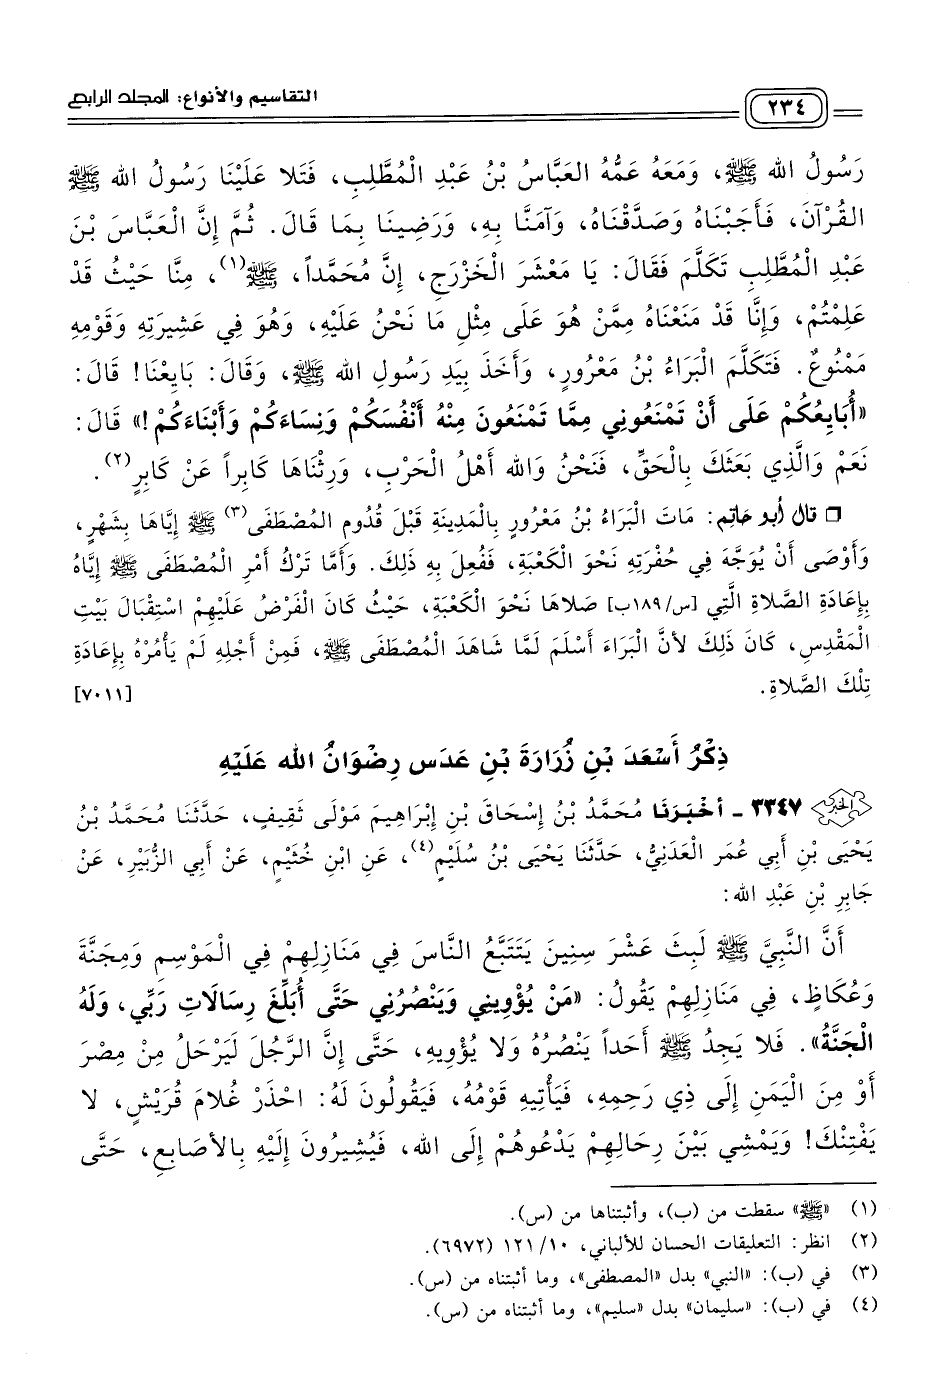 ٢٣٤
التقاسيم والأنواع: المجلد الرابع
رَسُولُ الله ﷺ، وَمَعَهُ عَمُّهُ العَبَّاسُ بْنُ عَبْدِ الْمُطَّلِبِ، فَتَلا عَلَيْنَا رَسُولُ الله ﷺ
القُرْآنَ، فَأَجَبْنَاهُ وَصَدَّقْنَاهُ، وَآمَنَّا بِهِ، وَرَضِينَا بِمَا قَالَ. ثُمَّ إِنَّ الْعَبَّاسَ بْنَ
عَبْدِ الْمُطَّلِبِ تَكَلَّمَ فَقَالَ: يَا مَعْشَرَ الْخَزْرَجِ، إِنَّ مُحَمَّداً، ﷺ(١)، مِنَّا حَيْثُ قَدْ
عَلِمْتُمْ، وَإِنَّا قَدْ مَنَعْنَاهُ مِمَّنْ هُوَ عَلَى مِثْلِ مَا نَحْنُ عَلَيْهِ، وَهُوَ فِي عَشِيرَتِهِ وَقَوْمِهِ
مَمْنُوعٌ. فَتَكَلَّمَ الْبَرَاءُ بْنُ مَعْرُورٍ، وَأَخَذَ بِيَدِ رَسُولِ الله ﷺ، وَقَالَ: بَايِعْنَا! قَالَ:
«أُبَايِعُكُمْ عَلَى أَنْ تَمْنَعُونِي مِمَّا تَمْنَعُونَ مِنْهُ أَنْفُسَكُمْ وَنِسَاءَكُمْ وَأَبْنَاءَكُمْ!» قَالَ:
نَعَمْ وَالَّذِي بَعَثَكَ بِالْحَقِّ، فَنَحْنُ وَالله أَهْلُ الْحَرْبِ، وَرِثْنَاهَا كَابِراً عَنْ كَابِرٍ(٢).
❑ قال أبو حاتم: مَاتَ الْبَرَاءُ بْنُ مَعْرُورٍ بِالْمَدِينَةِ قَبْلَ قُدُومِ المُصْطَفَى(٣) ﷺ إِيَّاهَا بِشَهْرٍ،
وَأَوْصَى أَنْ يُوَجَّهَ فِي حُفْرَتِهِ نَحْوَ الْكَعْبَةِ، فَفُعِلَ بِهِ ذَلِكَ. وَأَمَّا تَرْكُ أَمْرِ الْمُصْطَفَى ﷺ إِيَّاهُ
بِإِعَادَةِ الصَّلاةِ الَّتِي [س/١٨٩ب] صَلاهَا نَحْوَ الْكَعْبَةِ، حَيْثُ كَانَ الْفَرْضُ عَلَيْهِمْ اسْتِقْبَالَ بَيْتِ
الْمَقْدِسِ، كَانَ ذَلِكَ لأنَّ الْبَرَاءَ أَسْلَمَ لَمَّا شَاهَدَ الْمُصْطَفَى ﷺ، فَمِنْ أَجْلِهِ لَمْ يَأْمُرْهُ بِإِعَادَةِ
تِلْكَ الصَّلاةِ. [٧٠١١]
ذِكْرُ أَسْعَدَ بْنِ زُرَارَةَ بْنِ عَدَسٍ رِضْوَانُ الله عَلَيْهِ
الخبر ٣٣٤٧ ـ أَخْبَرَنَا مُحَمَّدُ بْنُ إِسْحَاقَ بْنِ إِبْرَاهِيمَ مَوْلَى ثَقِيفٍ، حَدَّثَنَا مُحَمَّدُ بْنُ
يَحْيَى بْنِ أَبِي عُمَر الْعَدَنِيُّ، حَدَّثَنَا يَحْيَى بْنُ سُلَيْمٍ(٤)، عَنِ ابْنِ خُثَيْمٍ، عَنْ أَبِي الزُّبَيْرِ، عَنْ
جَابِرِ بْنِ عَبْدِ الله:
أَنَّ النَّبِيَّ ﷺ لَبِثَ عَشْرَ سِنِينَ يَتَتَبَّعُ النَّاسَ فِي مَنَازِلِهِمْ فِي الْمَوْسِمِ وَمِجَنَّةَ
وَعُكَاظٍ، فِي مَنَازِلِهِمْ يَقُولُ: «مَنْ يُؤْوِينِي وَيَنْصُرُنِي حَتَّى أُبَلِّغَ رِسَالَاتِ رَبِّي، وَلَهُ
الْجَنَّةُ». فَلا يَجِدُ ﷺ أَحَداً يَنْصُرُهُ وَلا يُؤْوِيهِ، حَتَّى إِنَّ الرَّجُلَ لَيَرْحَلُ مِنْ مِصْرَ
أَوْ مِنَ الْيَمَنِ إِلَى ذِي رَحِمِهِ، فَيَأْتِيهِ قَوْمُهُ، فَيَقُولُونَ لَهُ: احْذَرْ غُلامَ قُرَيْشٍ، لا
يَفْتِنْكَ! وَيَمْشِي بَيْنَ رِحَالِهِمْ يَدْعُوهُمْ إِلَى الله، فَيُشِيرُونَ إِلَيْهِ بِالأصَابِعِ، حَتَّى
(١) «ﷺ» سقطت من (ب)، وأثبتناها من (س).
(٢) انظر: التعليقات الحسان للألباني، ١٠/ ١٢١ (٦٩٧٢).
(٣) في (ب): «النبي» بدل «المصطفى»، وما أثبتناه من (س).
(٤) في (ب): «سليمان» بدل «سليم»، وما أثبتناه من (س).